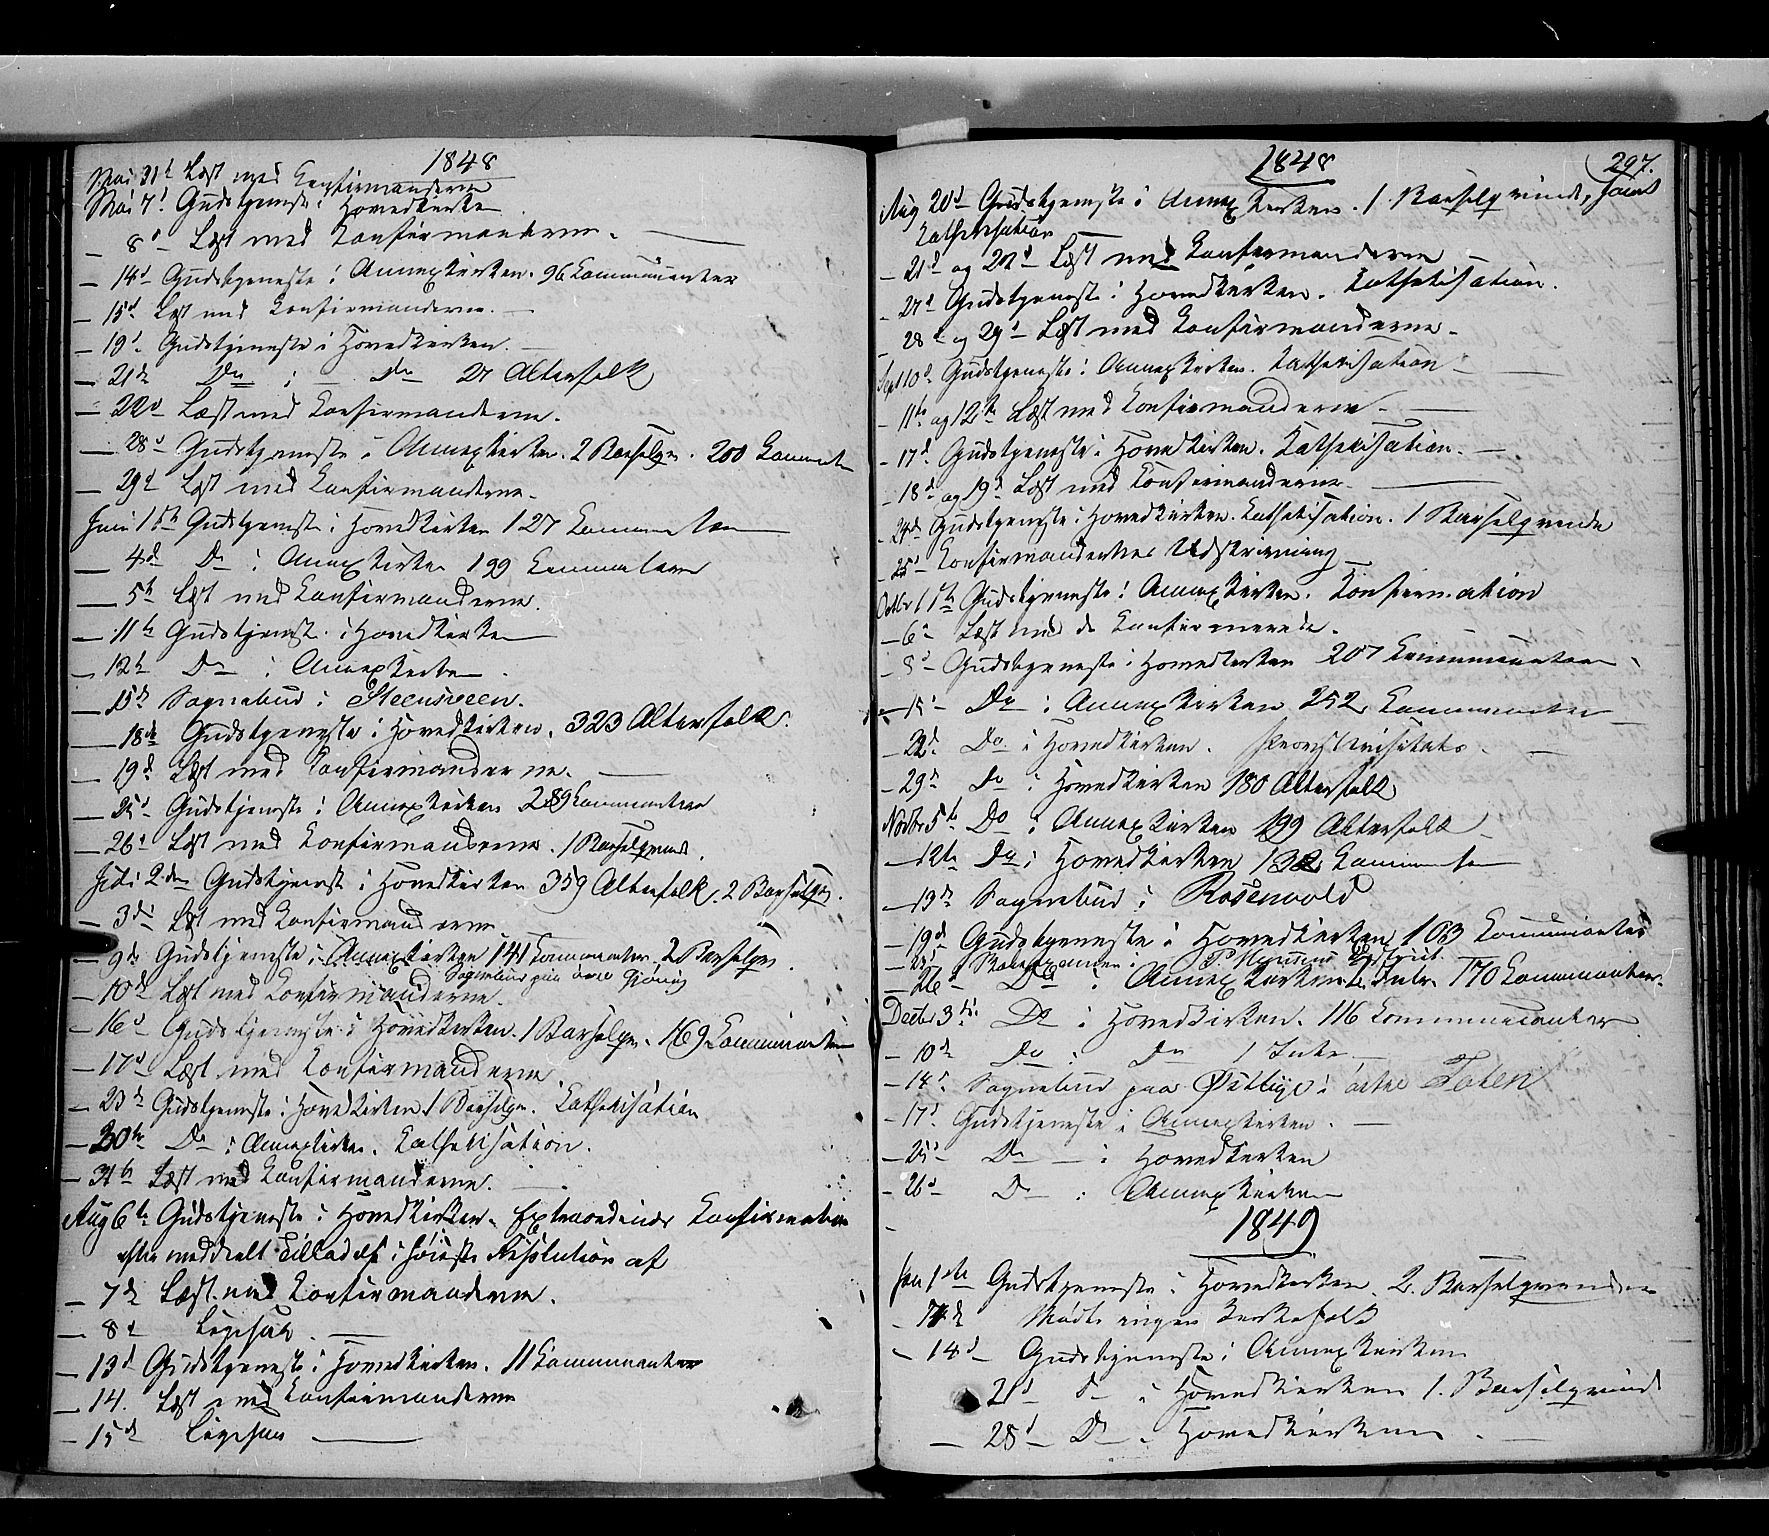 1848
Mai 31te Læst med Confirmanderne
Mai 7d Gudstjeneste i Hovedkirken
— 8d — Læst med Konfirmanderne. —
— 14d — Gudstjeneste i Annexkirken. 96 Communicanter
— 15d Læst med Confirmanderne. —
— 19d — Gudstjeneste i Hovedkirken. —
— 21de Do i — Do 27 Altersfolk
— 22d — Læst med Confirmanderne.
— 28d — Gudstjeneste i Annexkirken. 2 Barselqv. 200 Communic
— 29d Læst med Confirmanderne.
Juni 1ste Gudstjeneste i Hovedkirken 127 Communicanter
— 4de Do i Annexkirken 199 Communicanter
— 5te Læst med Confirmanderne.
— 11te Gudstjeneste i Hovedkirken
— 12te Do i Annexkirken.
— 15de Sognebud i Steensveen.
— 18de Gudstjeneste i Hovedkirken. 323 Altersfolk.
— 19d Læst med Confirmanderne. —
— 25d Gudstjeneste i Annexkirken 289 Communicanter
— 26d Læst med Confirmanderne. 1 Barselqvinde.
Juli 2den Gudstjeneste i Hovedkirken 359 Altersfolk. 2 Barselqv.
— 3die Læst med Confirmanderne
— 9de Gudstjeneste i Annexkirken 141 Communicanter. 2 Barselqv.
Sognebud paa Gjøvig
— 10de Læst med Confirmanderne.
— 16d Gudstjeneste i Hovedkirken. 1 Barselqv. 169 Communicanter
— 17d Læst med Confirmanderne
— 23de Gudstjeneste i Hovedkirken 1 Barselqv. Cathekisation
— 30te Do i Annexkirken. Cathekisation.
— 31te Læst med Confirmanderne. —
Aug 6te Gudstjeneste i Hovedkirken. Extraordinær Confirmation
efter meddeelt Tilladelse i høieste Resolution af
— 7de Læst med Confirmanderne.
— 8d Ligesaa. —
— 13d Gudstjeneste i Hovedkirken. 11 Communicanter
— 14. Læst med Confirmanderne
— 15de Ligesaa —
1848
297.
Aug 20d Gudstjeneste i Annexkirken. 1 Barselqvinde, samt
Cathekisation
— 21d og 22d Læst med Confirmanderne —
— 27d Gudstjeneste i Hovedkirken. Cathekisation.
— 28d og 29d Læst med Confirmanderne.
Sept 10d Gudstjeneste i Annexkirken. Cathekisation —
— 11te og 12te Læst med Confirmanderne. —
— 17d Gudstjeneste i Hovedkirken. Cathekisation. —
— 18d og 19d Læst med Confirmanderne. —
— 24de Gudstjeneste i Hovedkirken. Cathekisation. 1 Barselqvinde
— 25d Confirmandernes Udskrivning
Octbr 1ste Gudstjeneste i Annexkirken. Confirmation
— 6d Læst med de Confirmerede.
— 8d — Gudstjeneste i Hovedkirken 207 Communicanter
— 15d — Do i Annexkirken 252 Communicanter —
— 22d Do i Hovedkirken. Provstevisitats. —
— 29d Do i Hovedkirken 180 Altersfolk
Novbr 5te Do i Annexkirken 199 Altersfolk —
— 12te Do i Hovedkirken 132 Communicanter
— 13de Sognebud i Rosenvold
— 19d Gudstjeneste i Hovedkirken 103 Communicanter
— 25d i Distrikt.
— 26d Do i Annexkirken 2 Intr. 170 Communicanter.
Decbr 3die Do i Hovedkirken. 116 Communicanter
— 10de Do i Do 1 Intr. —
— 14d Sognebud paa Østbye i østre Toten
— 17d Gudstjeneste i Annexkirken. —
— 25d Do — i Hovedkirken
— 26d Do i Annexkirken
1849
Jan 1ste Gudstjeneste i Hovedkirken. 2 Barselqvinder
— 7de Mødte ingen Kirkefolk
— 14d — Gudstjeneste i Annexkirken
21d Do i Hovedkirken 1. Barselqvinde
— 28d — Do i Hovedkirken. —